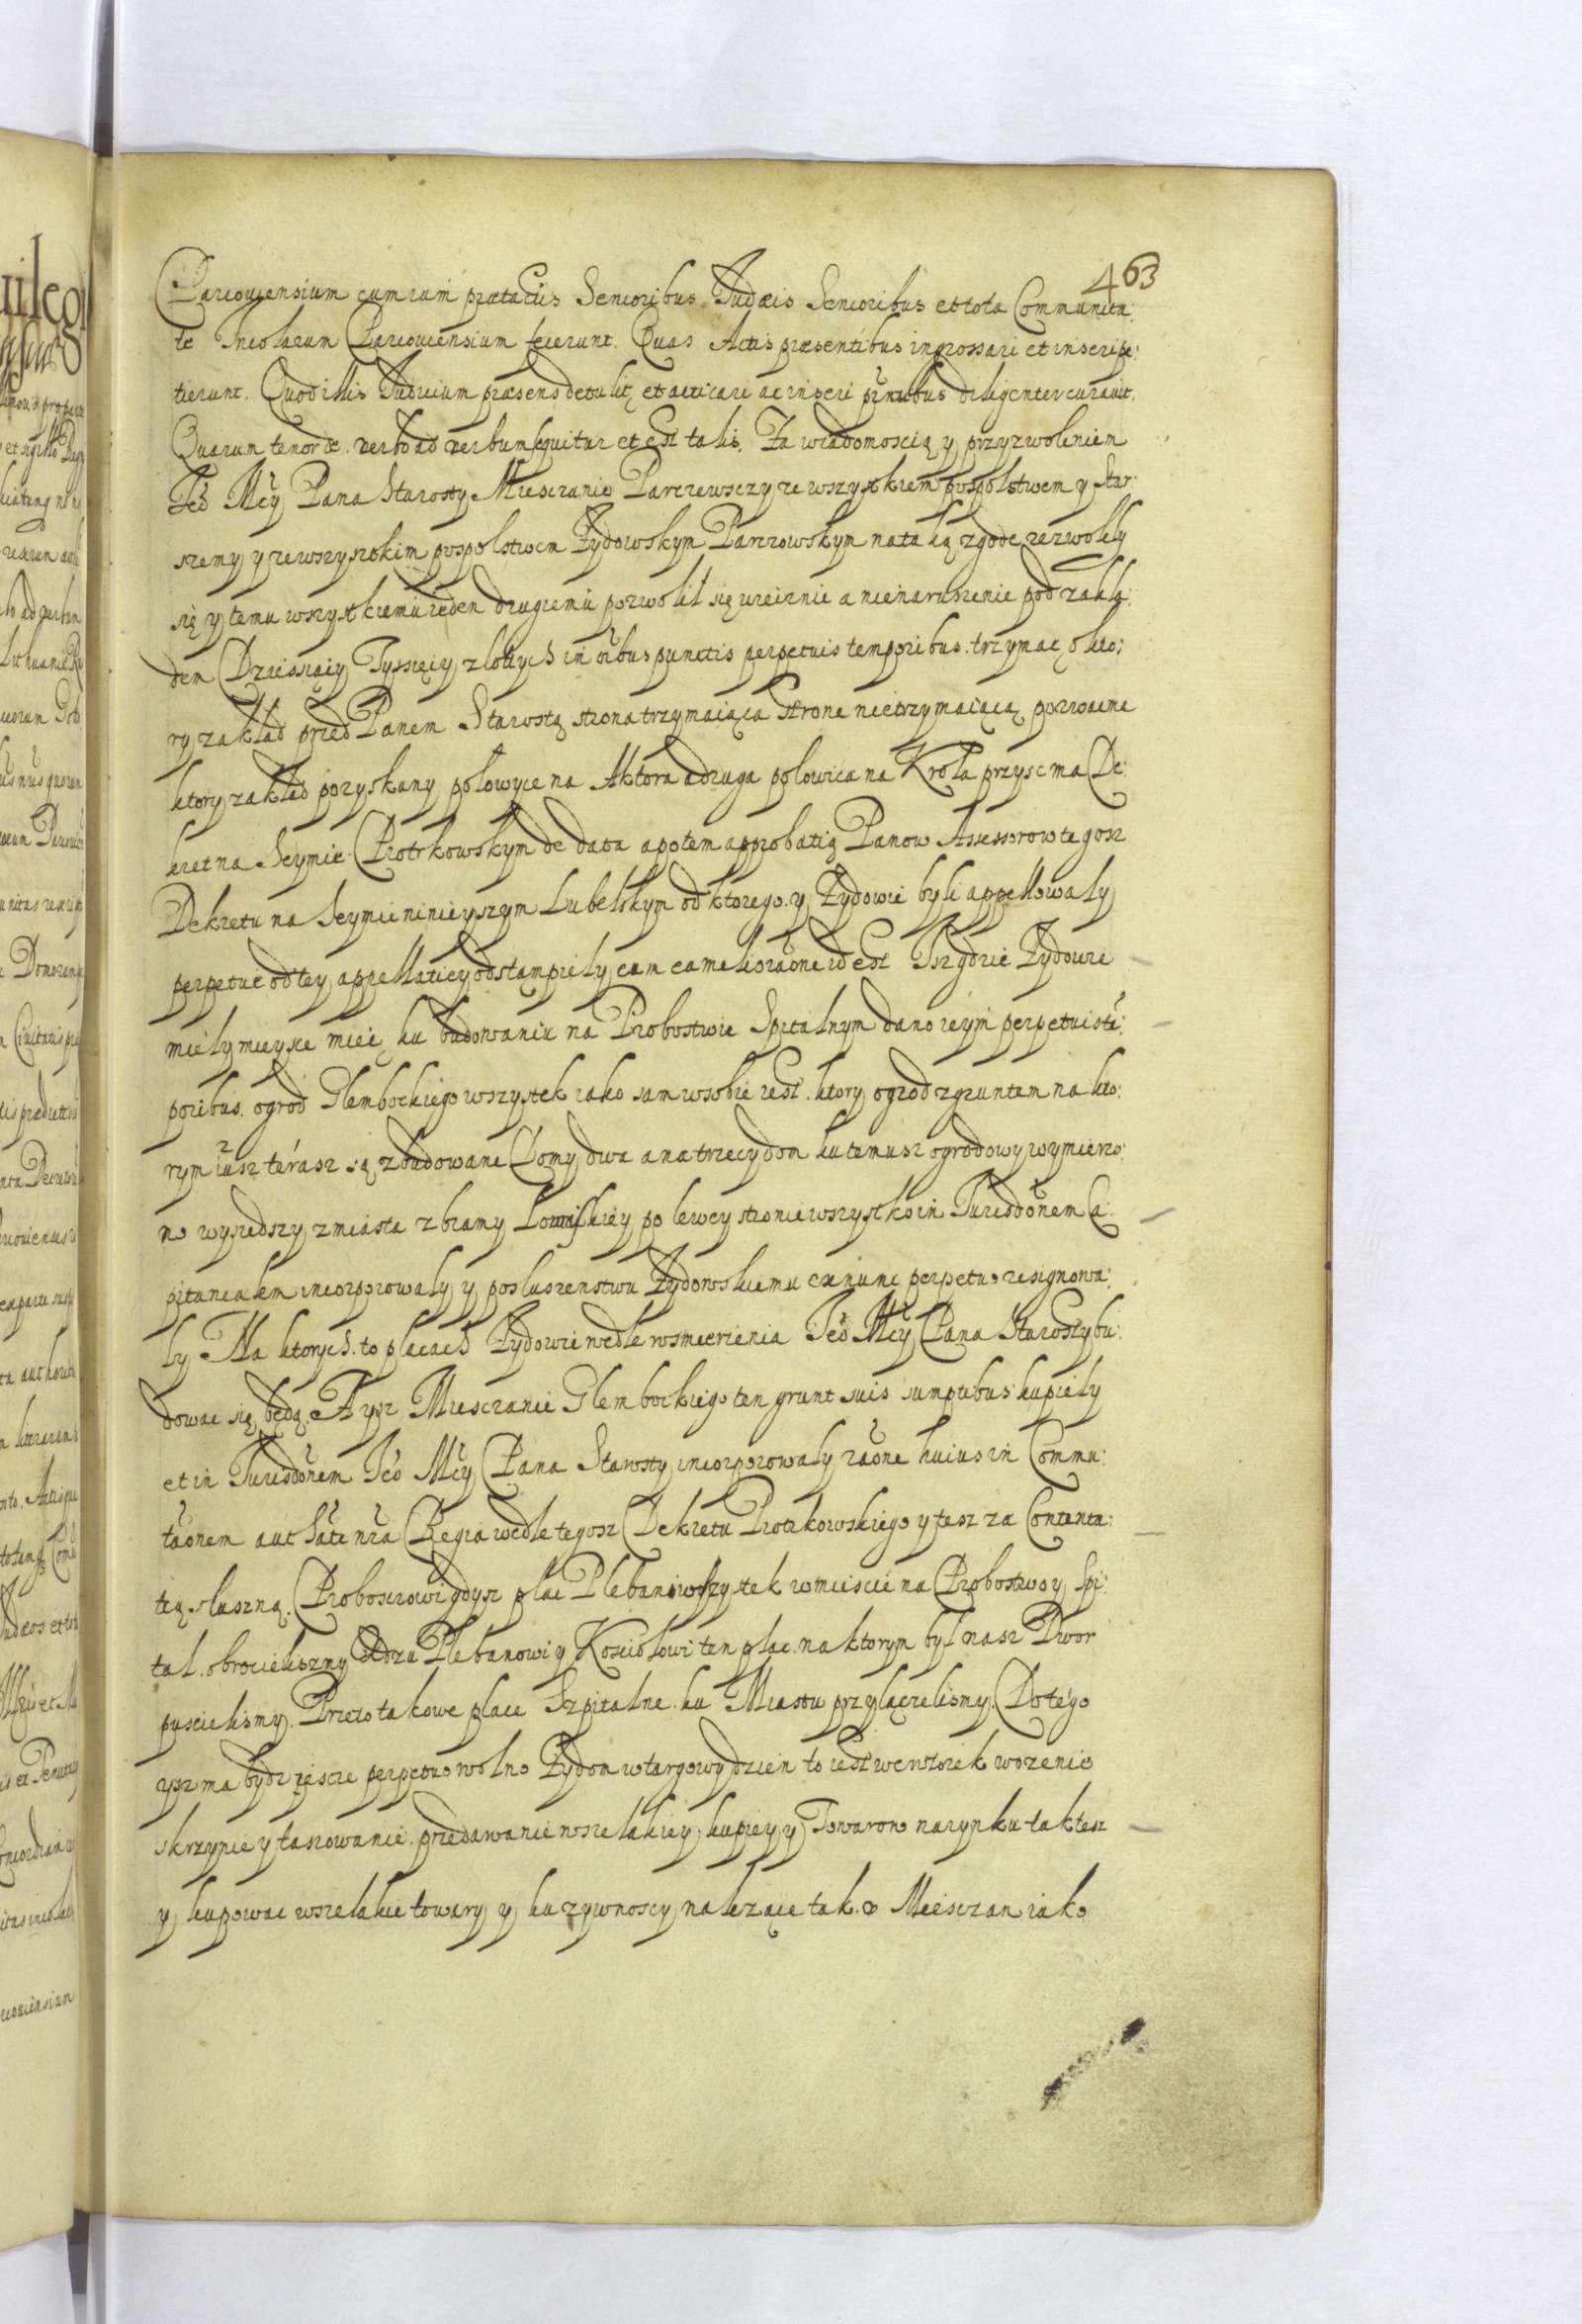 463
Parcouiensium cum cum prætactis Senioribus Judæis Senioribus et tota Communita:
te Incolarum Parcouiensium fecerunt. Quas Actis præsentibus ingrossari et inscripe:
tierunt. Quod illis Judicium præsens detulit, et acticari ac inseri pñtibus diligenter curauit.
Quarum tenor de verbo ad verbum sequitur et est talis. Za wiadomoscią y przyzwoleniem
Jeo Mcy Pana Starosty Miesczanie Parczewsczy ze wszystkiem pospolstwem y Star:
szemy y zewszyszokim pospolstwem Zydowskym Parczowskym na taką zgode zezwolely
się y temu wszystkiemu ieden drugiemu pozwolil się wiecznie a nienaruszenie pod zakla:
dem Dziesiąciy Tysięcy zlotych in oibus punctis perpetuis temporibus. trzymac o kto:
ry zaklad przed Panem Starostą strona trzymaiąca strone nietrzymaiącą pozwacne
ktory zaklad pozyskany polowyce na Aktora a druga polowica na Krola przysc ma De:
kret na Seymie Piotrkowskym de data a potem approbatią Panow Assessorow tegosz
Dekretu na Seymie ninieyszym Lubelskym od ktorego y Zydowie byli appellowaly
perpetue od tey appellaticy odstąmpiely cum ea melioraõne id est Isz gdzie Zydowie
miely mieysce miec ku budowaniu na Probostwie Spitalnym dano ieym perpetuis tē:
poribus. ogrod Glembockiego wszystek iako sam w sobie iest. ktory ogrod z gruntem na kto:
rym iusz terasz są zbudowane Domy dwa a na trzecy dom ku temusz ogrodowy wymierzo:
no wyszedszy z miasta z bramy po lewey stronie wszystko in Jurisdõnem Ca:
pitanealem incorporowaly y posluszenstwu Zydowskiemu ex nunc perpetuo resignowa:
ly Na ktorych to placach Zydowie wedle wsmierzenia Jeo Mcy Pana Starosty bu:
dowac się będą. A ysz Miesczanie Glembockiego ten grunt suis sumptibus kupiely
et in Jurisdõnem Jeo Mcy Pana Starosty incorporowaly raõne huius in Commu:
taõnem authãte nrã Regia wedle tegosz Dekretu Piotrkowskiego y tesz za Contenta:
tią sluszną. Proboszowi gdysz plac Plebani wszystek w miescie na Probostwo y Spi:
tal. obrocielismy A dzu Plebanowi y Kosciolowi ten plac na ktorym byl nasz Dwor
puscielismy. Przeto takowe place Szpitalne ku Miastu przyłączelismy. Do tego
ysz ma bydz iescze perpetuo wolno Zydom w targowy dzien to iest we wtorek wozenie
skrzynie y taszowanie. przedawanie wszelakiey kupiey y Towarow na rynku taktesz
y kupowac wszelakie towary y ku zywnoscy należące tak o Miesczan iako